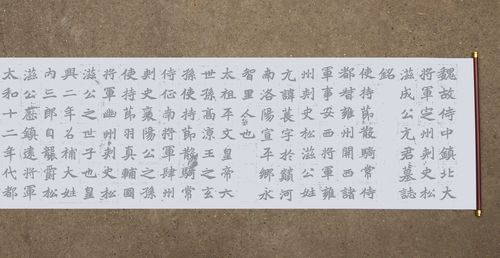 魏故侍中鎮北大
將軍定州刺史松
滋成公元君墓誌
銘
使持節散騎常侍
都督雍州開西諸
軍事安西將軍雍
州刺史松滋公姓
元諱萇字於巔河
南洛陽宣平鄉永
智里人也
太祖平文皇帝六
世孫高涼王之玄
孫使持節散騎常
侍征南將軍肆州
刺史襄陽公之孫
使持節羽真輔國
將軍幽州刺史松
滋公之世子也皇
興二年召補大姓
內三郎自襲爵松
滋公歷鎮遠將軍
太和十二年代都